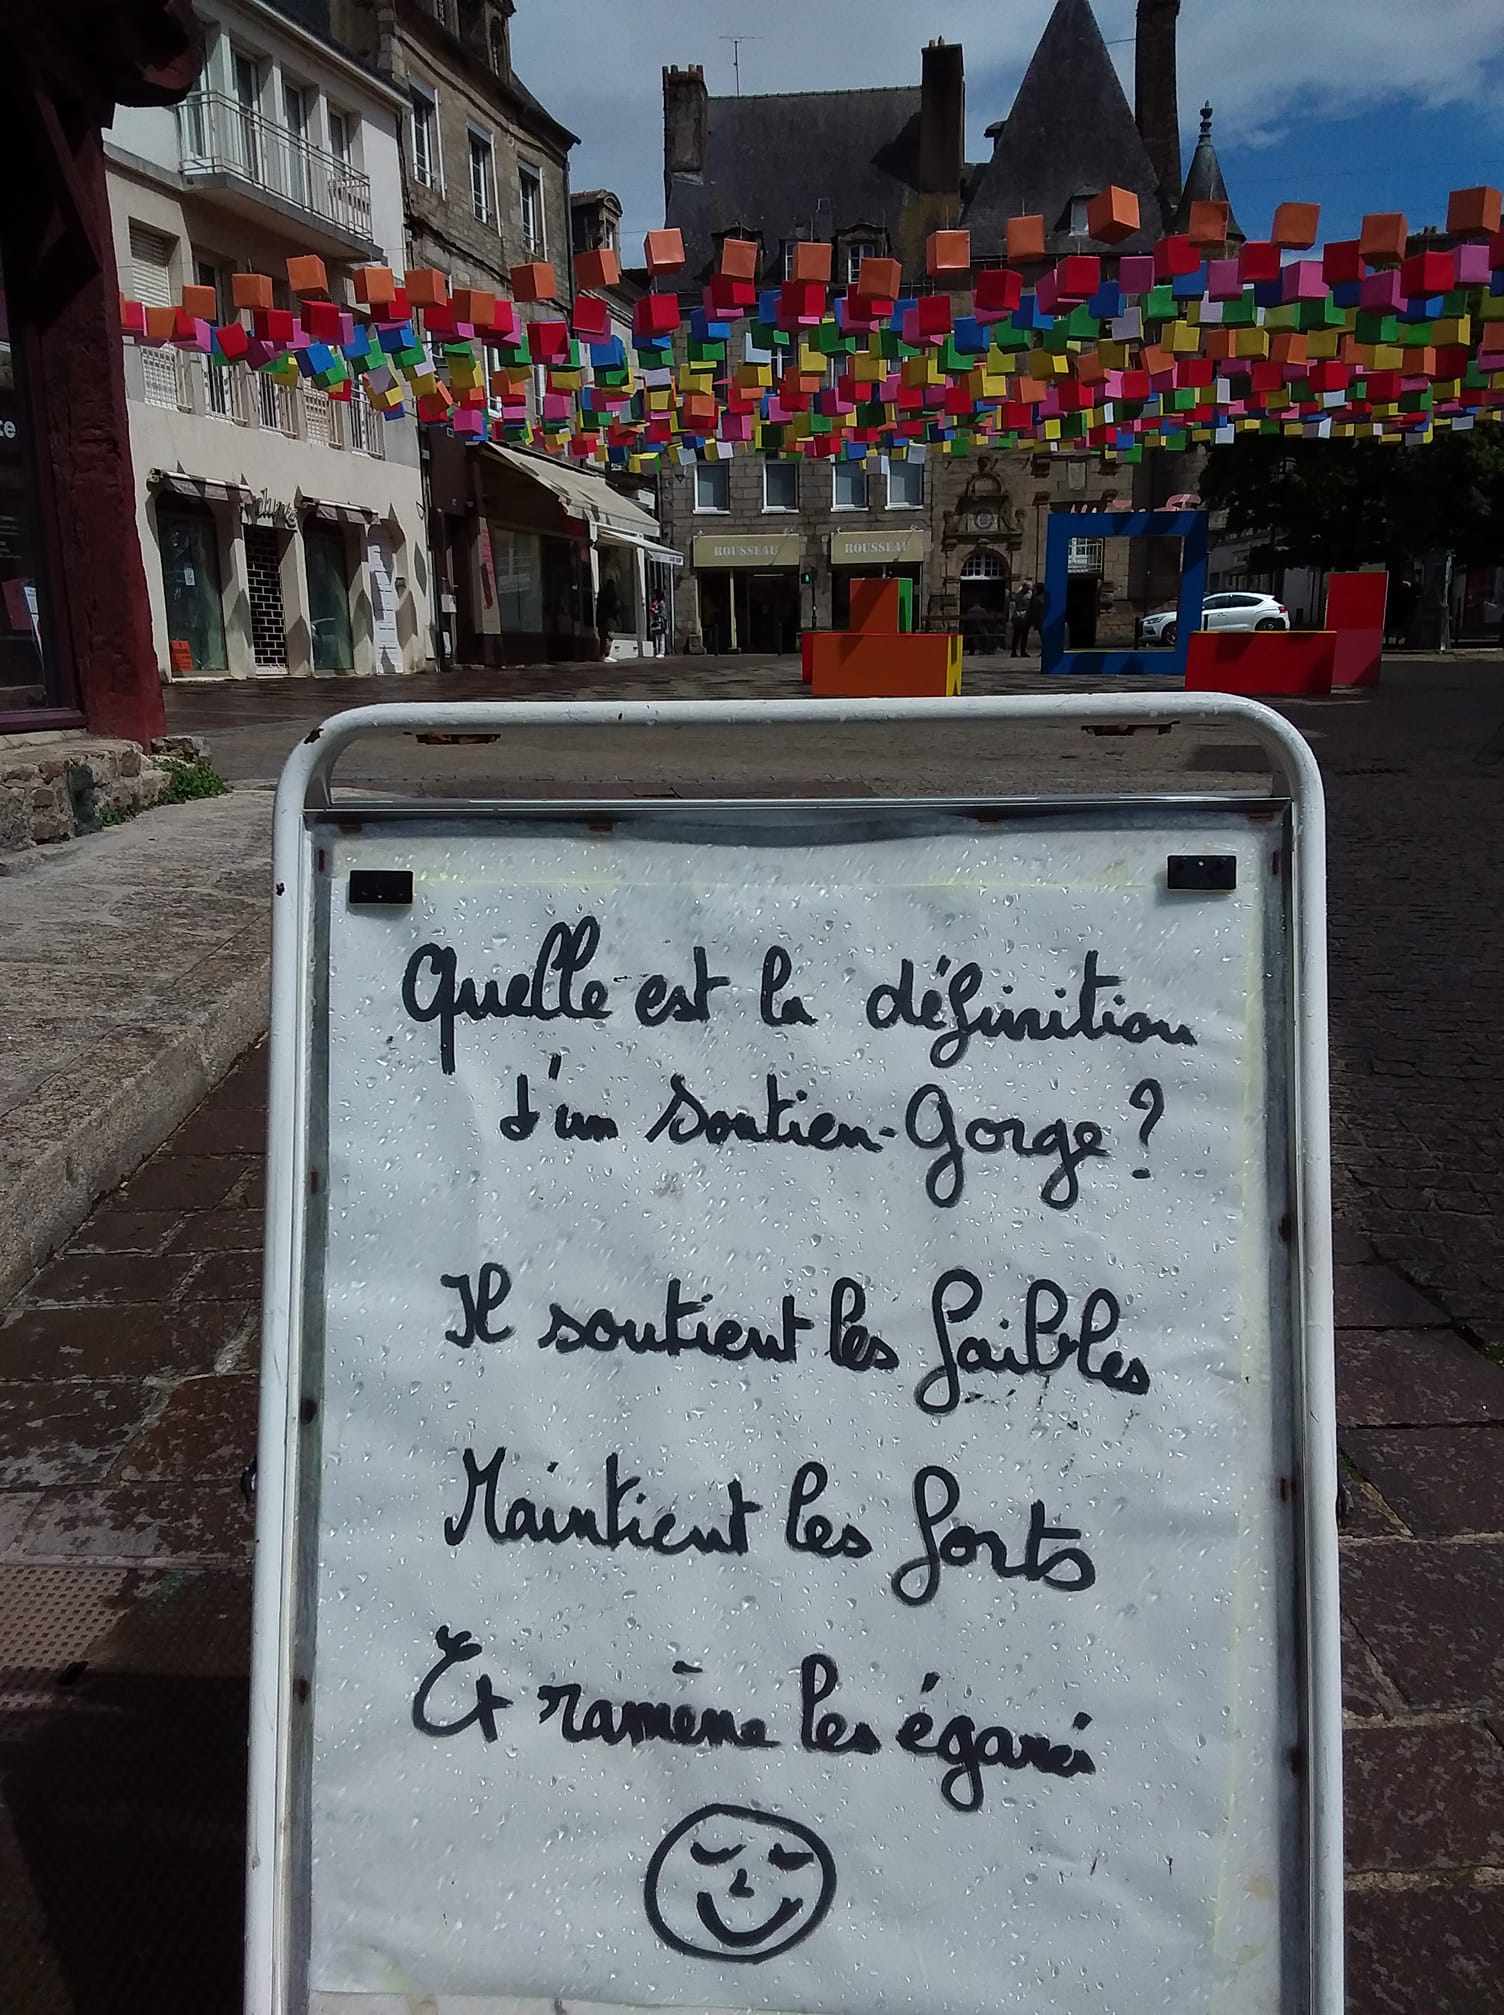 ROUSSEAU ROUSSEAU
Quelle est la définition
d'un Soutien-Gorge ?
Il soutient les faibles
Maintient les forts
Et ramène les égarés